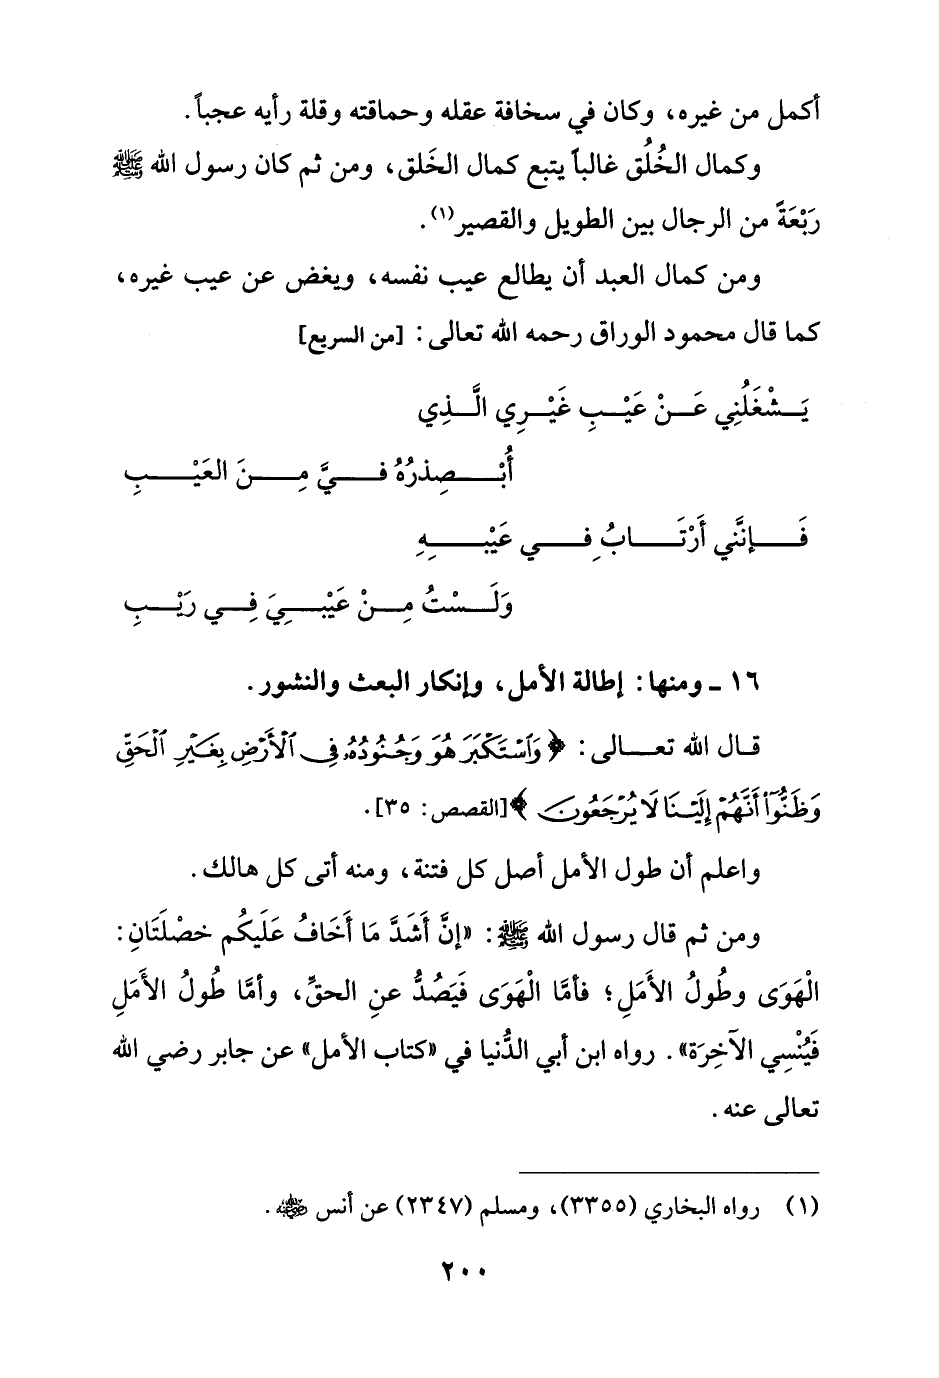 أكمل من غيره، وكان في سخافة عقله وحماقته وقلة رأيه عجباً.
وكمال الخُلُق غالباً يتبع كمال الخَلق، ومن ثم كان رسول الله ﷺ
رَبْعَةً من الرجال بين الطويل والقصير(١).
ومن كمال العبد أن يطالع عيب نفسه، ويغض عن عيب غيره،
كما قال محمود الوراق رحمه الله تعالى: [من السريع]
يَشْغَلُنِي عَنْ عَيْبِ غَيْرِي الَّذِي
أُبْصِرُهُ فِيَّ مِنَ العَيْبِ
فَإنَّنِي أَرْتَابُ فِي عَيْبِهِ
وَلَسْتُ مِنْ عَيْبِيَ فِي رَيْبِ
١٦ - ومنها: إطالة الأمل، وإنكار البعث والنشور.
قال الله تعالى: ﴿وَٱسْتَكْبَرَ هُوَ وَجُنُودُهُۥ فِى ٱلْأَرْضِ بِغَيْرِ ٱلْحَقِّ
وَظَنُّوٓا۟ أَنَّهُمْ إِلَيْنَا لَا يُرْجَعُونَ﴾ [القصص: ٣٥].
واعلم أن طول الأمل أصل كل فتنة، ومنه أتى كل هالك.
ومن ثم قال رسول الله ﷺ: «إنَّ أَشَدَّ مَا أَخَافُ عَلَيكُم خصْلَتَانِ:
الْهَوَى وطُولُ الأَمَلِ؛ فأمَّا الْهَوَى فَيَصُدُّ عنِ الحقِّ، وأمَّا طُولُ الأَمَلِ
فَيُنْسِي الآخِرَة». رواه ابن أبي الدُّنيا في «كتاب الأمل» عن جابر رضي الله
تعالى عنه.
(١) رواه البخاري (٣٣٥٥)، ومسلم (٢٣٤٧) عن أنس رضي الله عنه.
٢٠٠